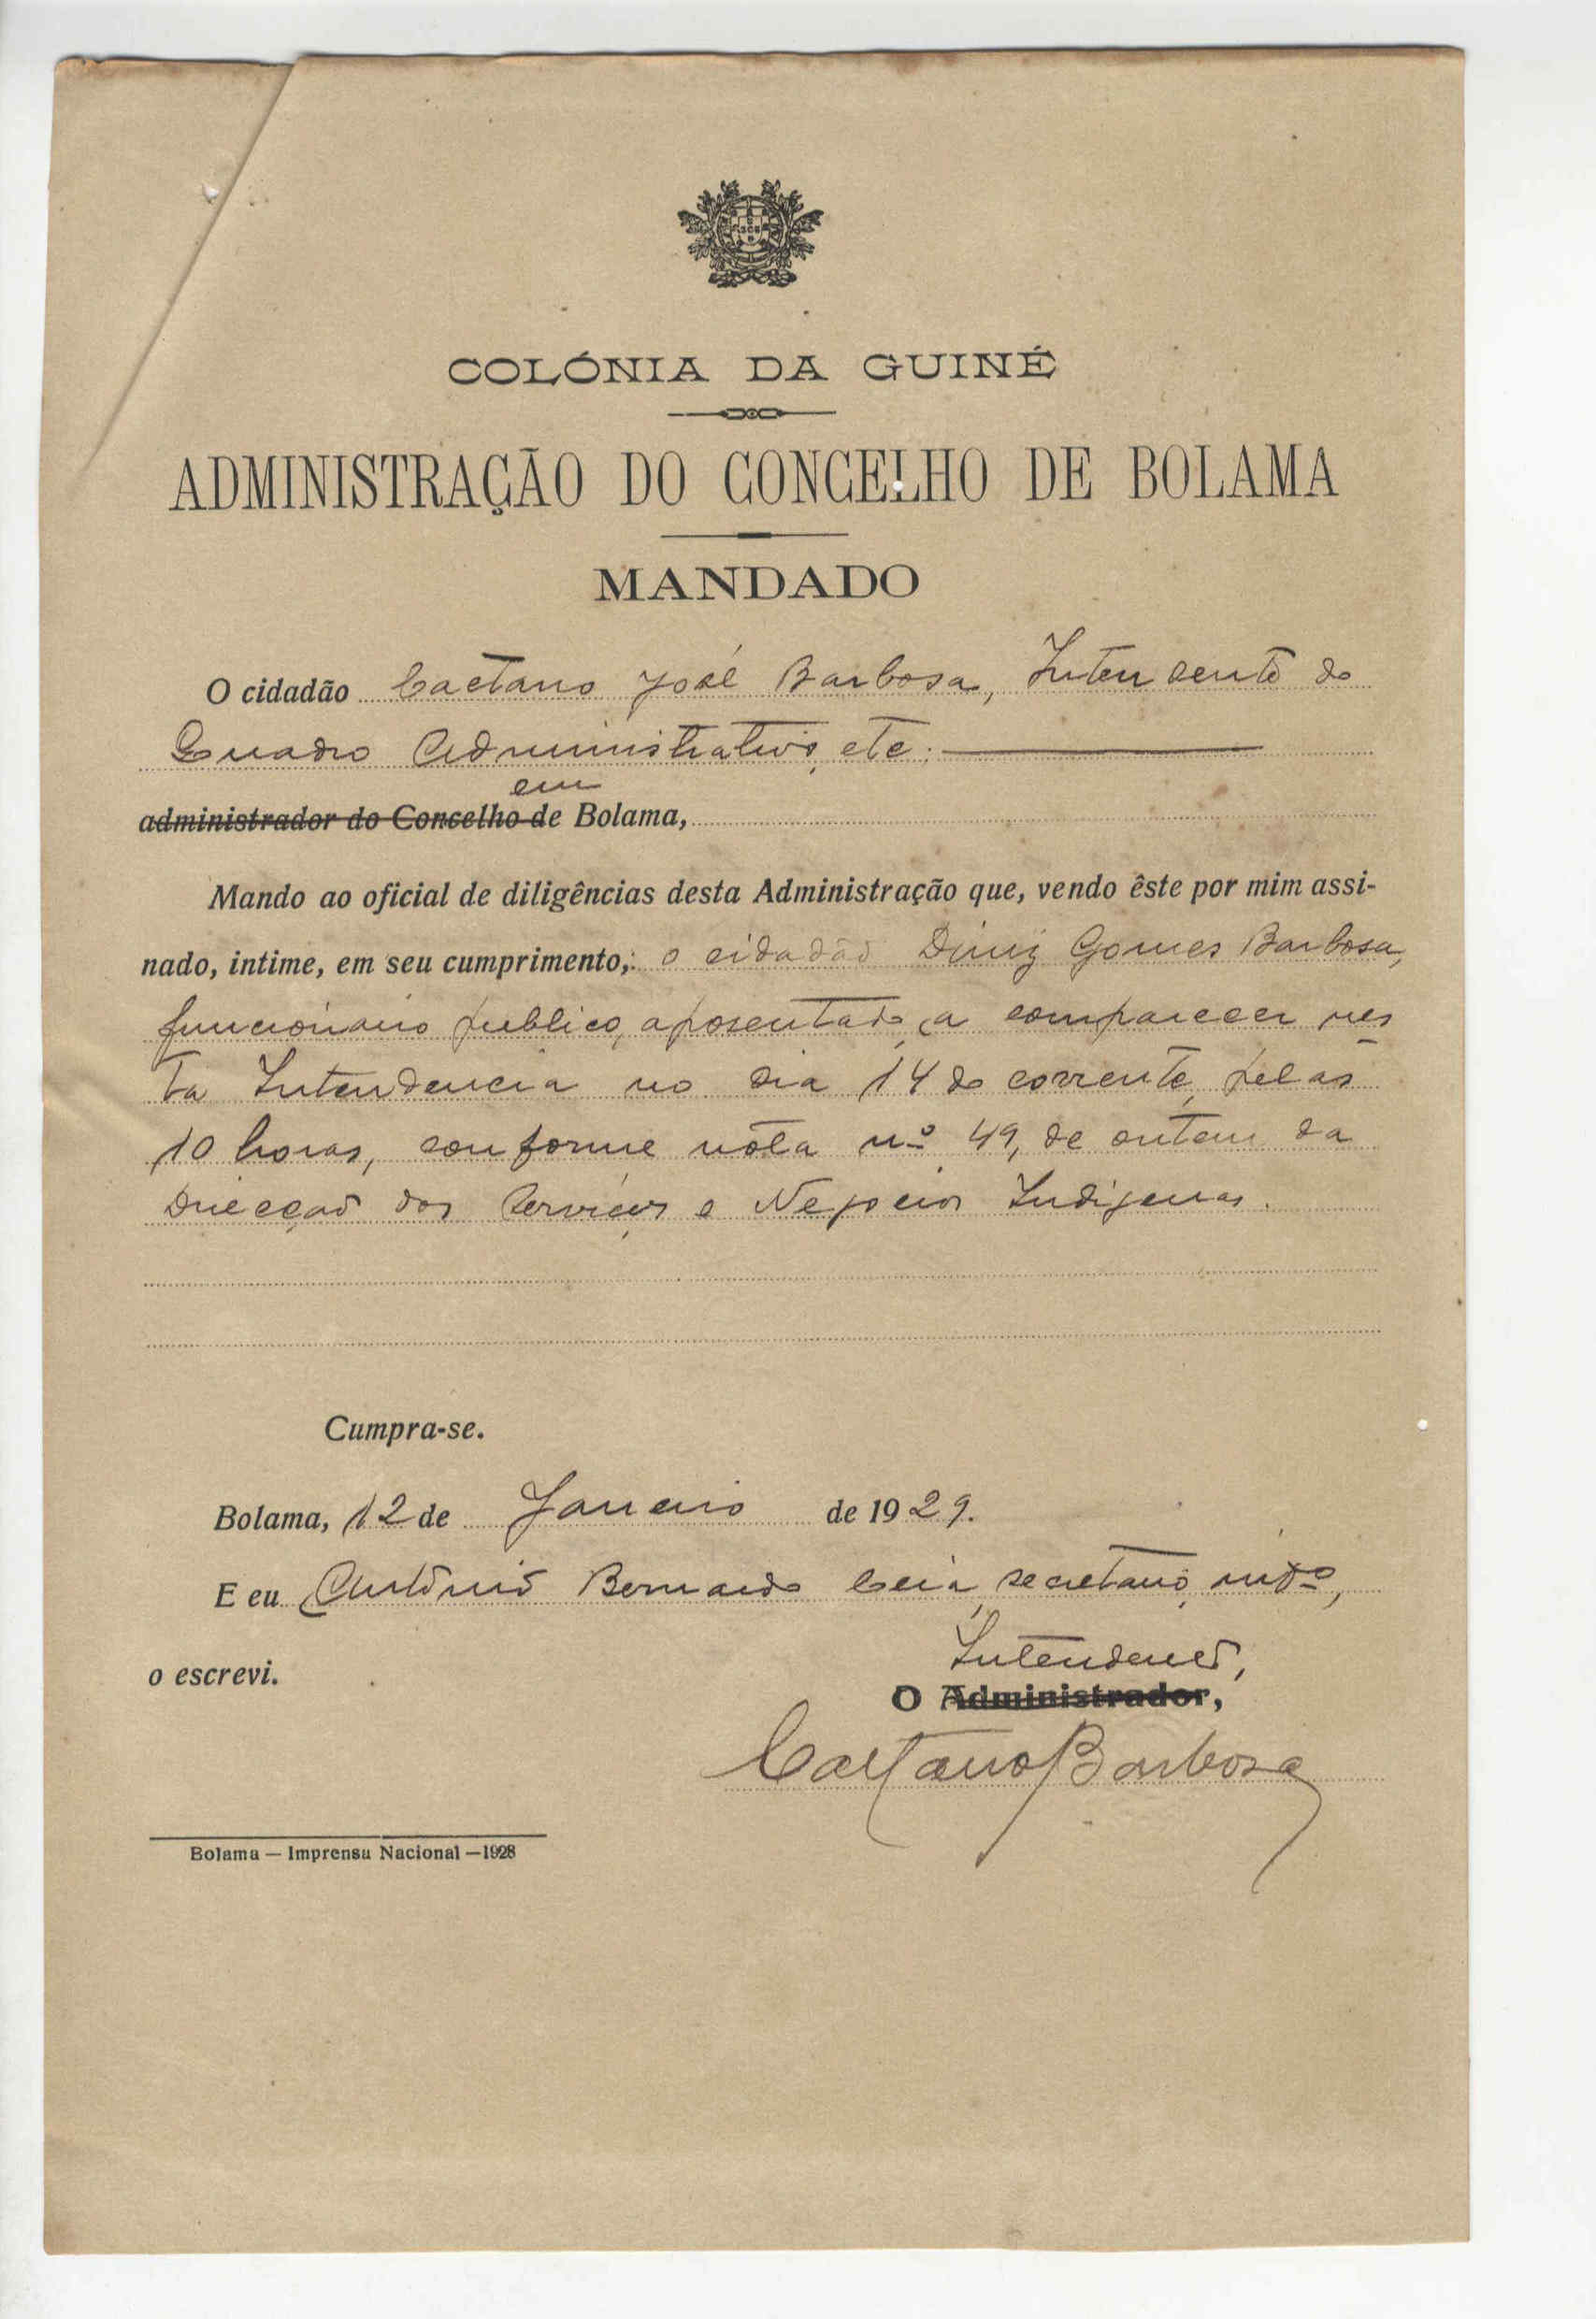 COLÓNIA DA GUINÉ
ADMINISTRAÇÃO DO CONCELHO DE BOLAMA
MANDADO
O cidadão Caetano José Barbosa, Intendente do
Quadro Administrativo, etc.
em
administrador do Concelho de Bolama,
Mando ao oficial de diligências desta Administração que, vendo êste por mim assi-
nado, intime, em seu cumprimento, o cidadão Diniz Gomes Barbosa,
funcionario publico, aposentado, a comparecer nes
ta Intendencia no dia 14 do corrente, pelas
10 horas, conforme nóta nº 49, de ontem da
Direcção dos Serviços e Negocios Indigenas.
Cumpra-se.
Bolama, 12 de Janeiro de 1929.
E eu António Bernardo secretario, intº,
Intendente,
o escrevi.
O Administrador,
Caetano Barbosa
Bolama — Imprensa Nacional — 1928